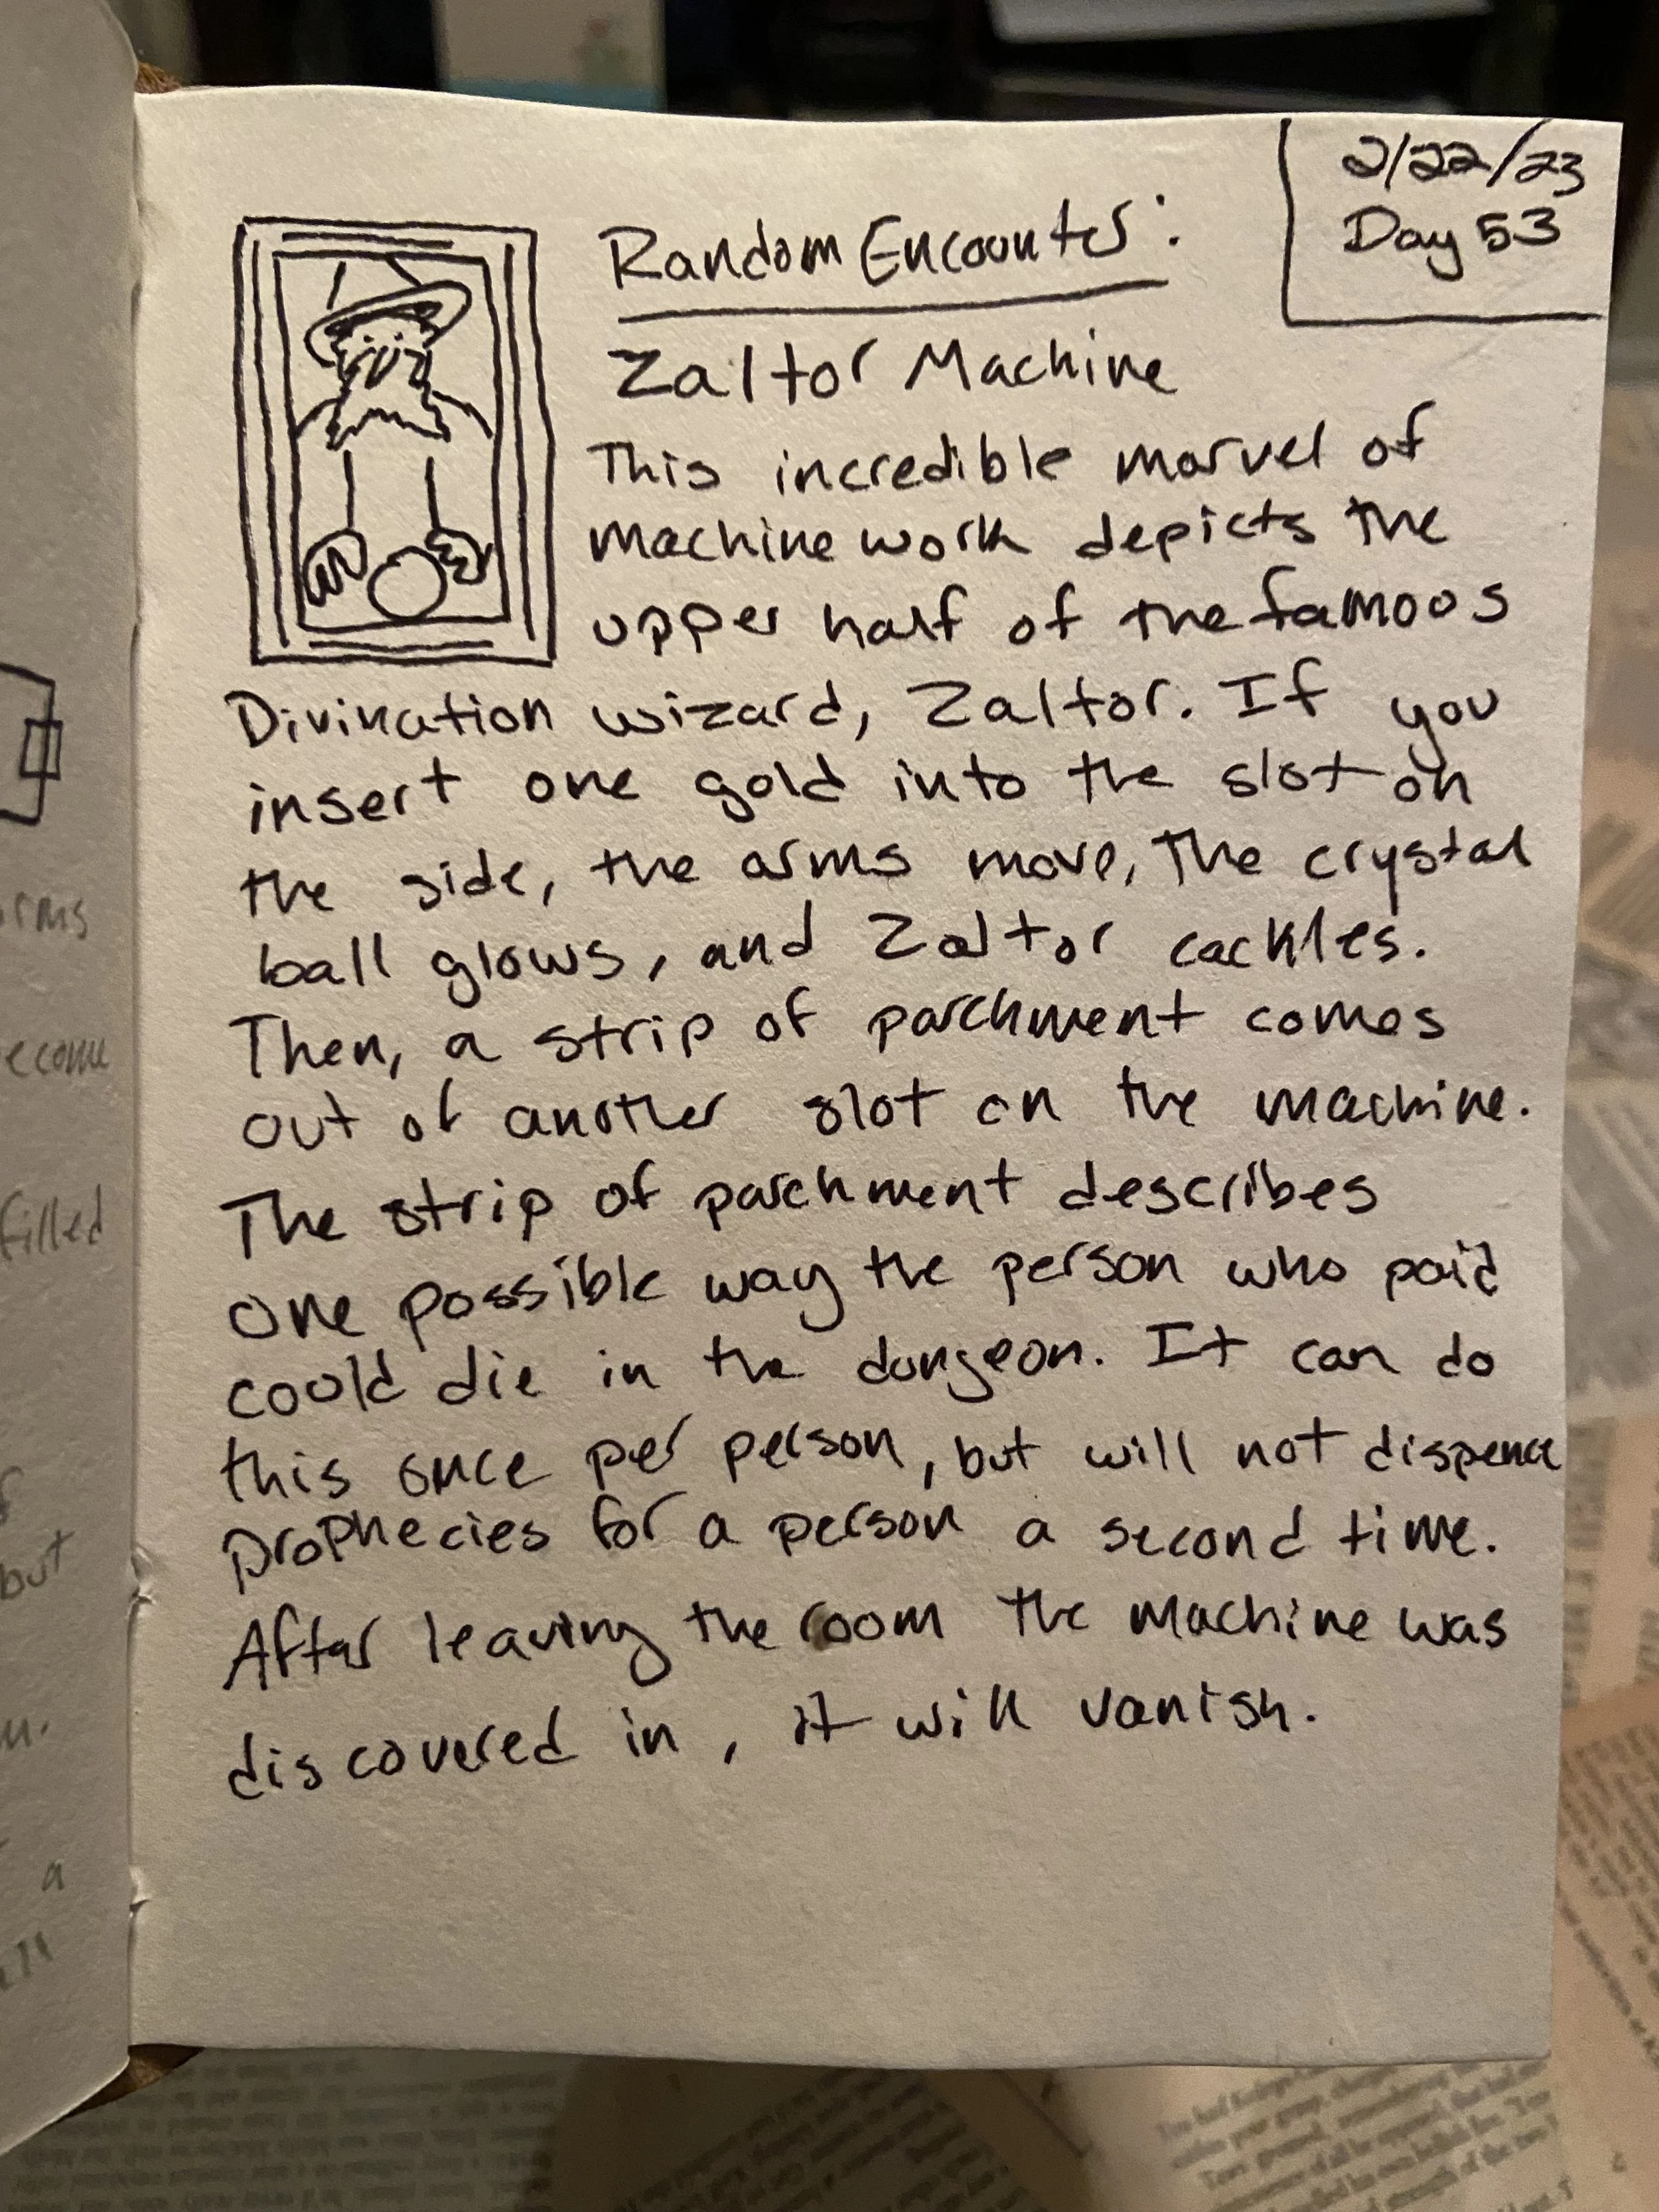 2/22/23
Day 53
Random Encounter:
Zaltor Machine
This incredible marvel of
machine work depicts the
upper half of the famous
Divination wizard, Zaltor. If you
insert one gold into the slot on
the side, the arms move, the crystal
ball glows, and Zaltor cackles.
Then, a strip of parchment comes
out of another slot on the machine.
The strip of parchment describes
one possible way the person who paid
could die in the dungeon. It can do
this once per person, but will not dispence
prophecies for a person a second time.
After leaving the room the machine was
discovered in, it will vanish.
rms
ecome
filled
but
a